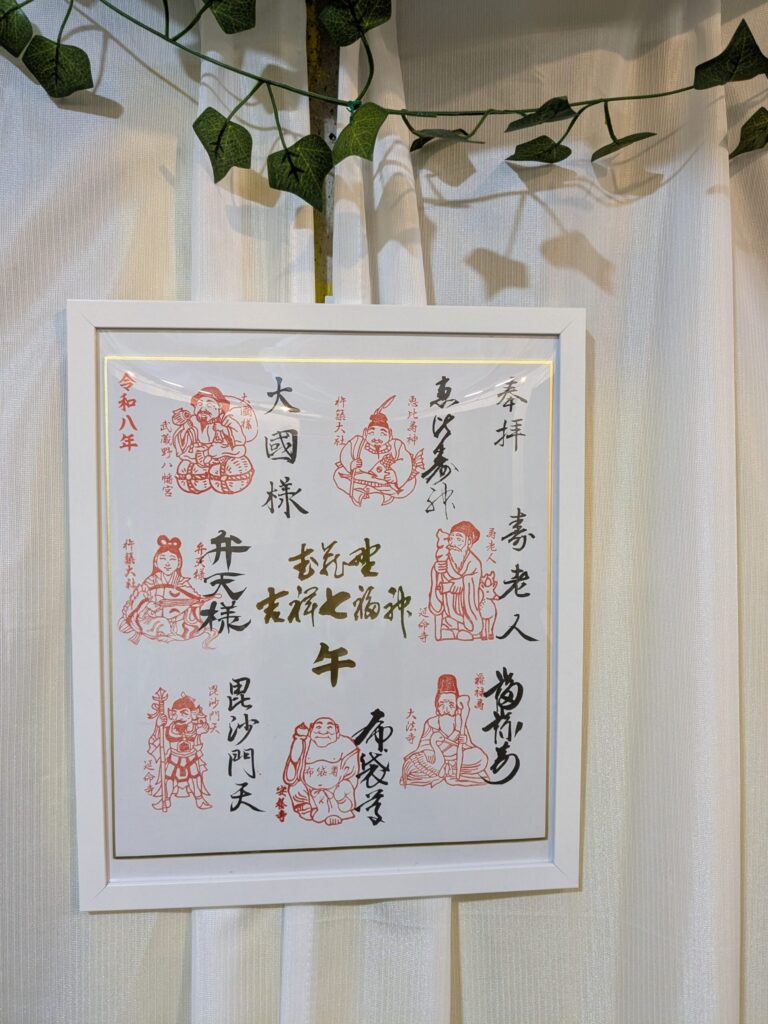 奉拝
恵比寿神
恵比寿神
杵築大社
大國様
大國様
武蔵野八幡宮
令和八年
寿老人
寿老人
延命寺
武蔵野
吉祥七福神
午
弁天様
弁天様
杵築大社
福禄寿
福禄寿
大法寺
布袋尊
布袋尊
安養寺
毘沙門天
毘沙門天
延命寺